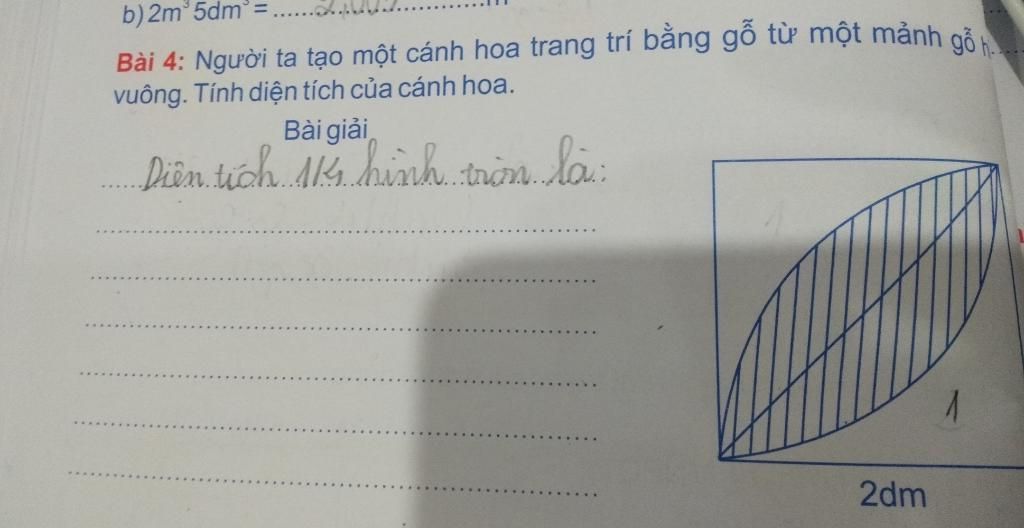 b) 2m³ 5dm³ = ........................
Bài 4: Người ta tạo một cánh hoa trang trí bằng gỗ từ một mảnh gỗ
vuông. Tính diện tích của cánh hoa.
Bài giải
Diên tích 1/4 hình tròn là:
1
2dm